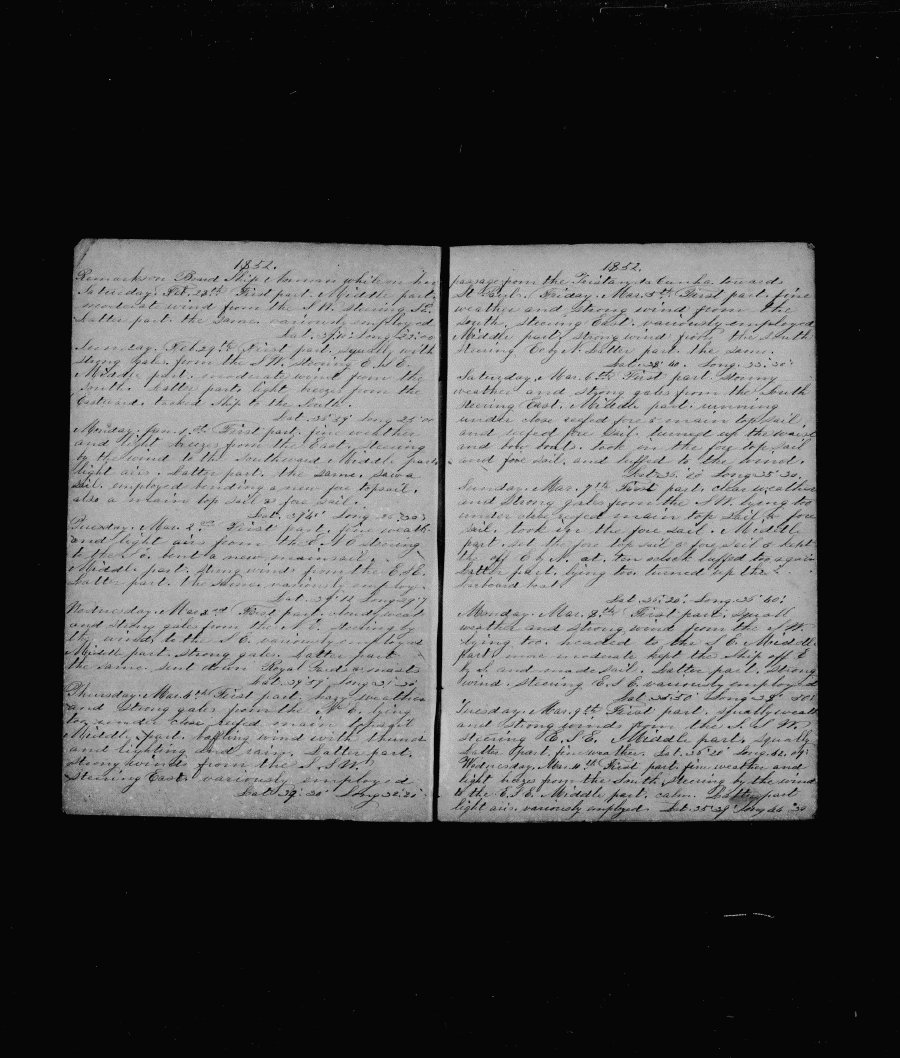 1852.
Remarks on Board Ship while on her
Saturday. Feb. 28th First part. Middle part
moderat wind from the S.W. steering
Latter part. the same. variously employed
Lat. Long.
Sunday. Feb. 29th First part. squaly with
strong gales from the S.W. Steering E.S.E.
Middle part. moderat wind from the
South. Latter part. light breezes from the
Eastward. tacked Ship to the South.
Lat. Long.
Monday. 1st. First part. fine weather
and light breezes from the East. Steering
by the wind to the Southward Middle part
light airs. Latter part. the same. saw a
sail. employed bending a new fore topsail.
also a main top sail & fore sail.
Lat. Long.
Tuesday. Mar. 2nd First part. fine weath
and light airs from the E.N.E steering
to the S.E. bent a new mainsail.
Middle part. strong wind from the E.N.E.
Latter part. the same. variously employ
Lat. Long.
Wednesday. Mar. 3rd First part. cloudy weat
and strong gales from the N.E. steering by
the wind to the S.E. variously employed
Middle part. Strong gales. Latter part
the same. sent down Royal Yards & masts
Lat. Long.
Thursday. Mar. 4th First part. hazy weather
and strong gales from the N.E. lying
too under close reefed main topsail
Middle part. baffling wind with thund
and lighting and rain. Latter part.
strong winds from the S.S.W.
Steering East. variously employed
Lat. Long.
1852.
passage from the Tristan de Cunha towards
St. Paul. Friday. Mar. 5th First part. fine
weather and Strong wind from the
South. Steering East. variously employed
Middle part. Strong wind from the South
Steering Latter part. the same.
Lat. Long.
Saturday. Mar. 6th First part. Stormy
weather and strong gales from the South
steering East. Middle part. running
under close reefed fore & main top sail.
and reefed fore sail. turned up the
and boats. took in the fore top sail
and fore sail. and luffed to the wind.
Lat. Long.
Sunday. Mar. 7th First part. clear weather
and Strong gales from the S.W. lying to
under close reefed main top sail & fore
sail. took in the fore sail. Middle
part. set the fore top sail & fore sail & kept
her off E by N. at. ten oclock luffed too again
Latter part. lying too turned up the
larboard boat.
Lat. Long.
Monday. Mar. 8th First part. squall
weather and strong wind from the S.W.
lying too headed to the S.E. Middle
part. more moderate kept the ship off E
by S. and made sail. Latter part. Strong
wind. Steering E.S.E. variously employed
Lat. Long.
Tuesday. Mar. 9th First part. squally weath
and strong wind from the S.S.W.
steering E.S.E. Middle part. Squally
Latter part. fine weather. Lat. Long.
Wednesday. Mar. 10th First part. fine weather and
light breezes from the South. Steering by the wind
to the E.S.E. Middle part. calm. Latter part
light airs. variously employed. Lat. Long.